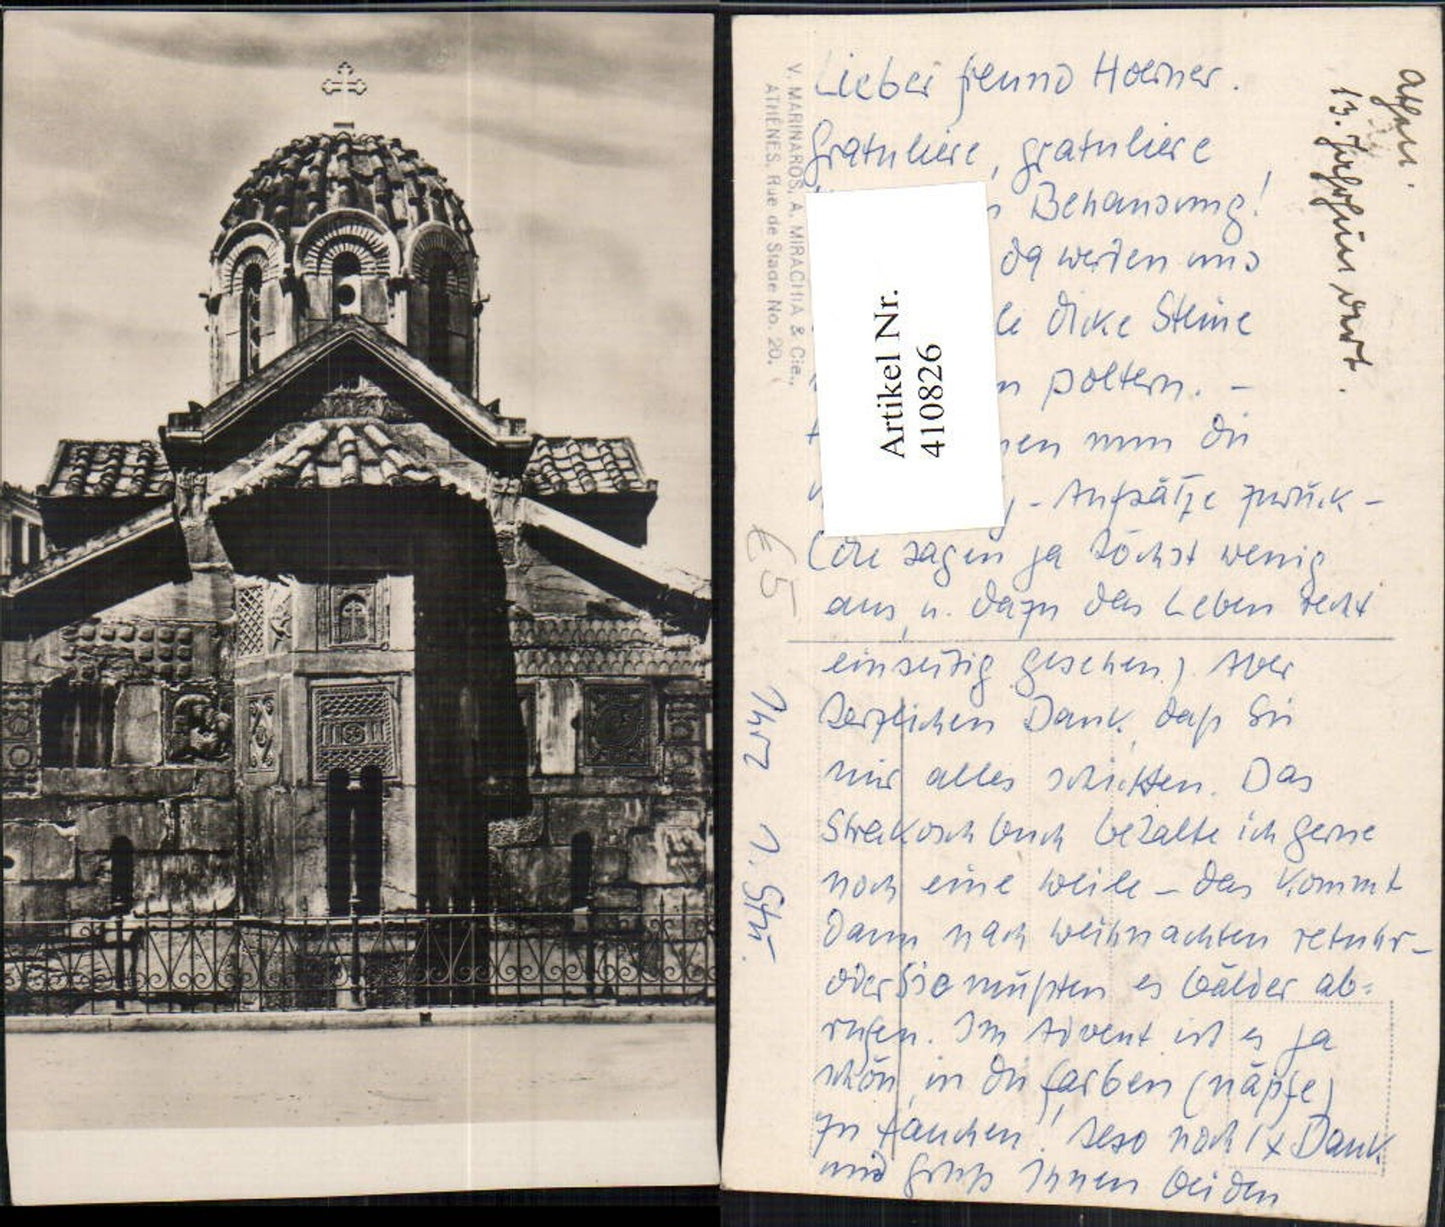 Lieber Freund Hoerner.
Gratuliere, gratuliere
Behandlung!
da werden uns
dicke Steine
poltern. –
nen nun die
- Aufsätze zurück –
(die sagen ja höchst wenig
aus, u. dazu das Leben recht
einseitig gesehen.) Aber
herzlichen Dank, daß Sie
mir alles schickten. Das
buch behalte ich gerne
noch eine Weile – das kommt
dann nach Weihnachten retour –
oder Sie müßten es bälder ab-
rufen. Im Advent ist es ja
schön, in die Farben (näpfe)
zu tauchen! Also noch 1x Dank
und Gruß Ihnen beiden
Ihr
Athen.
13. Jahrhundert.
V. MARINAROS, A. MIRACHIA & Cie.,
ATHÈNES, Rue de Stade No. 20.
€5
Artikel Nr.
410826